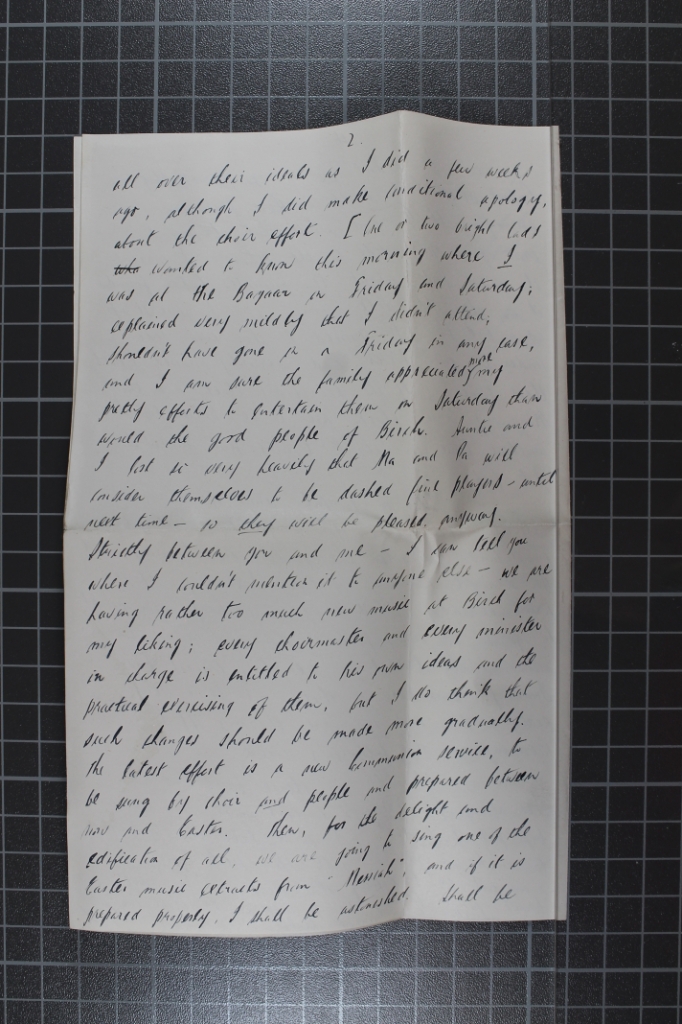 2.
all over their ideals as I did a few weeks
ago, although I did make conditional apology,
about the choir effort. [One or two bright lads
who wanted to know this morning where I
was at the Bazaar on Friday and Saturday;
explained very mildly that I didn't attend,
shouldn't have gone on a Friday in any case,
and I am sure the family appreciated more my
pretty efforts to entertain them on Saturday than
would the good people of Birch. Auntie and
I lost so very heavily that Ma and Pa will
consider themselves to be dashed fine players - until
next time - so they will be pleased, anyway.
Strictly between you and me - I can tell you
where I couldn't mention it to anyone else - we are
having rather too much new music at Birch for
my liking; every choirmaster and every minister
in charge is entitled to his own ideas and the
practical exercising of them, but I do think that
such changes should be made more gradually.
The latest effort is a new Communion service, to
be sung by choir and people and prepared between
now and Easter. Then, for the delight and
edification of all, we are going to sing one of the
Easter music extracts from "Messiah", and if it is
prepared properly, I shall be astonished. Shall be